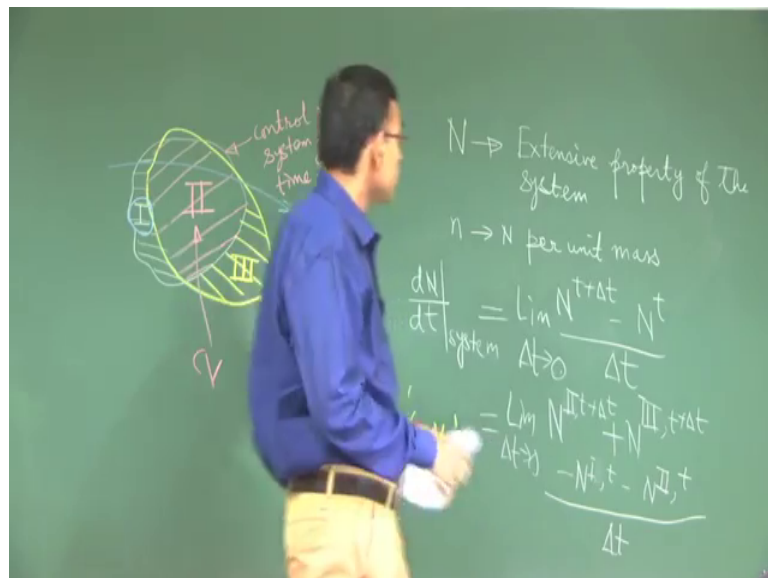 control
system
time
I
II
III
N → Extensive property of the
system
n → N per unit mass
dN/dt|system = Lim Δt→0 (N^t+Δt - N^t)/Δt
= Lim Δt→0 (N^II,t+Δt + N^III,t+Δt - N^I,t - N^II,t)/Δt